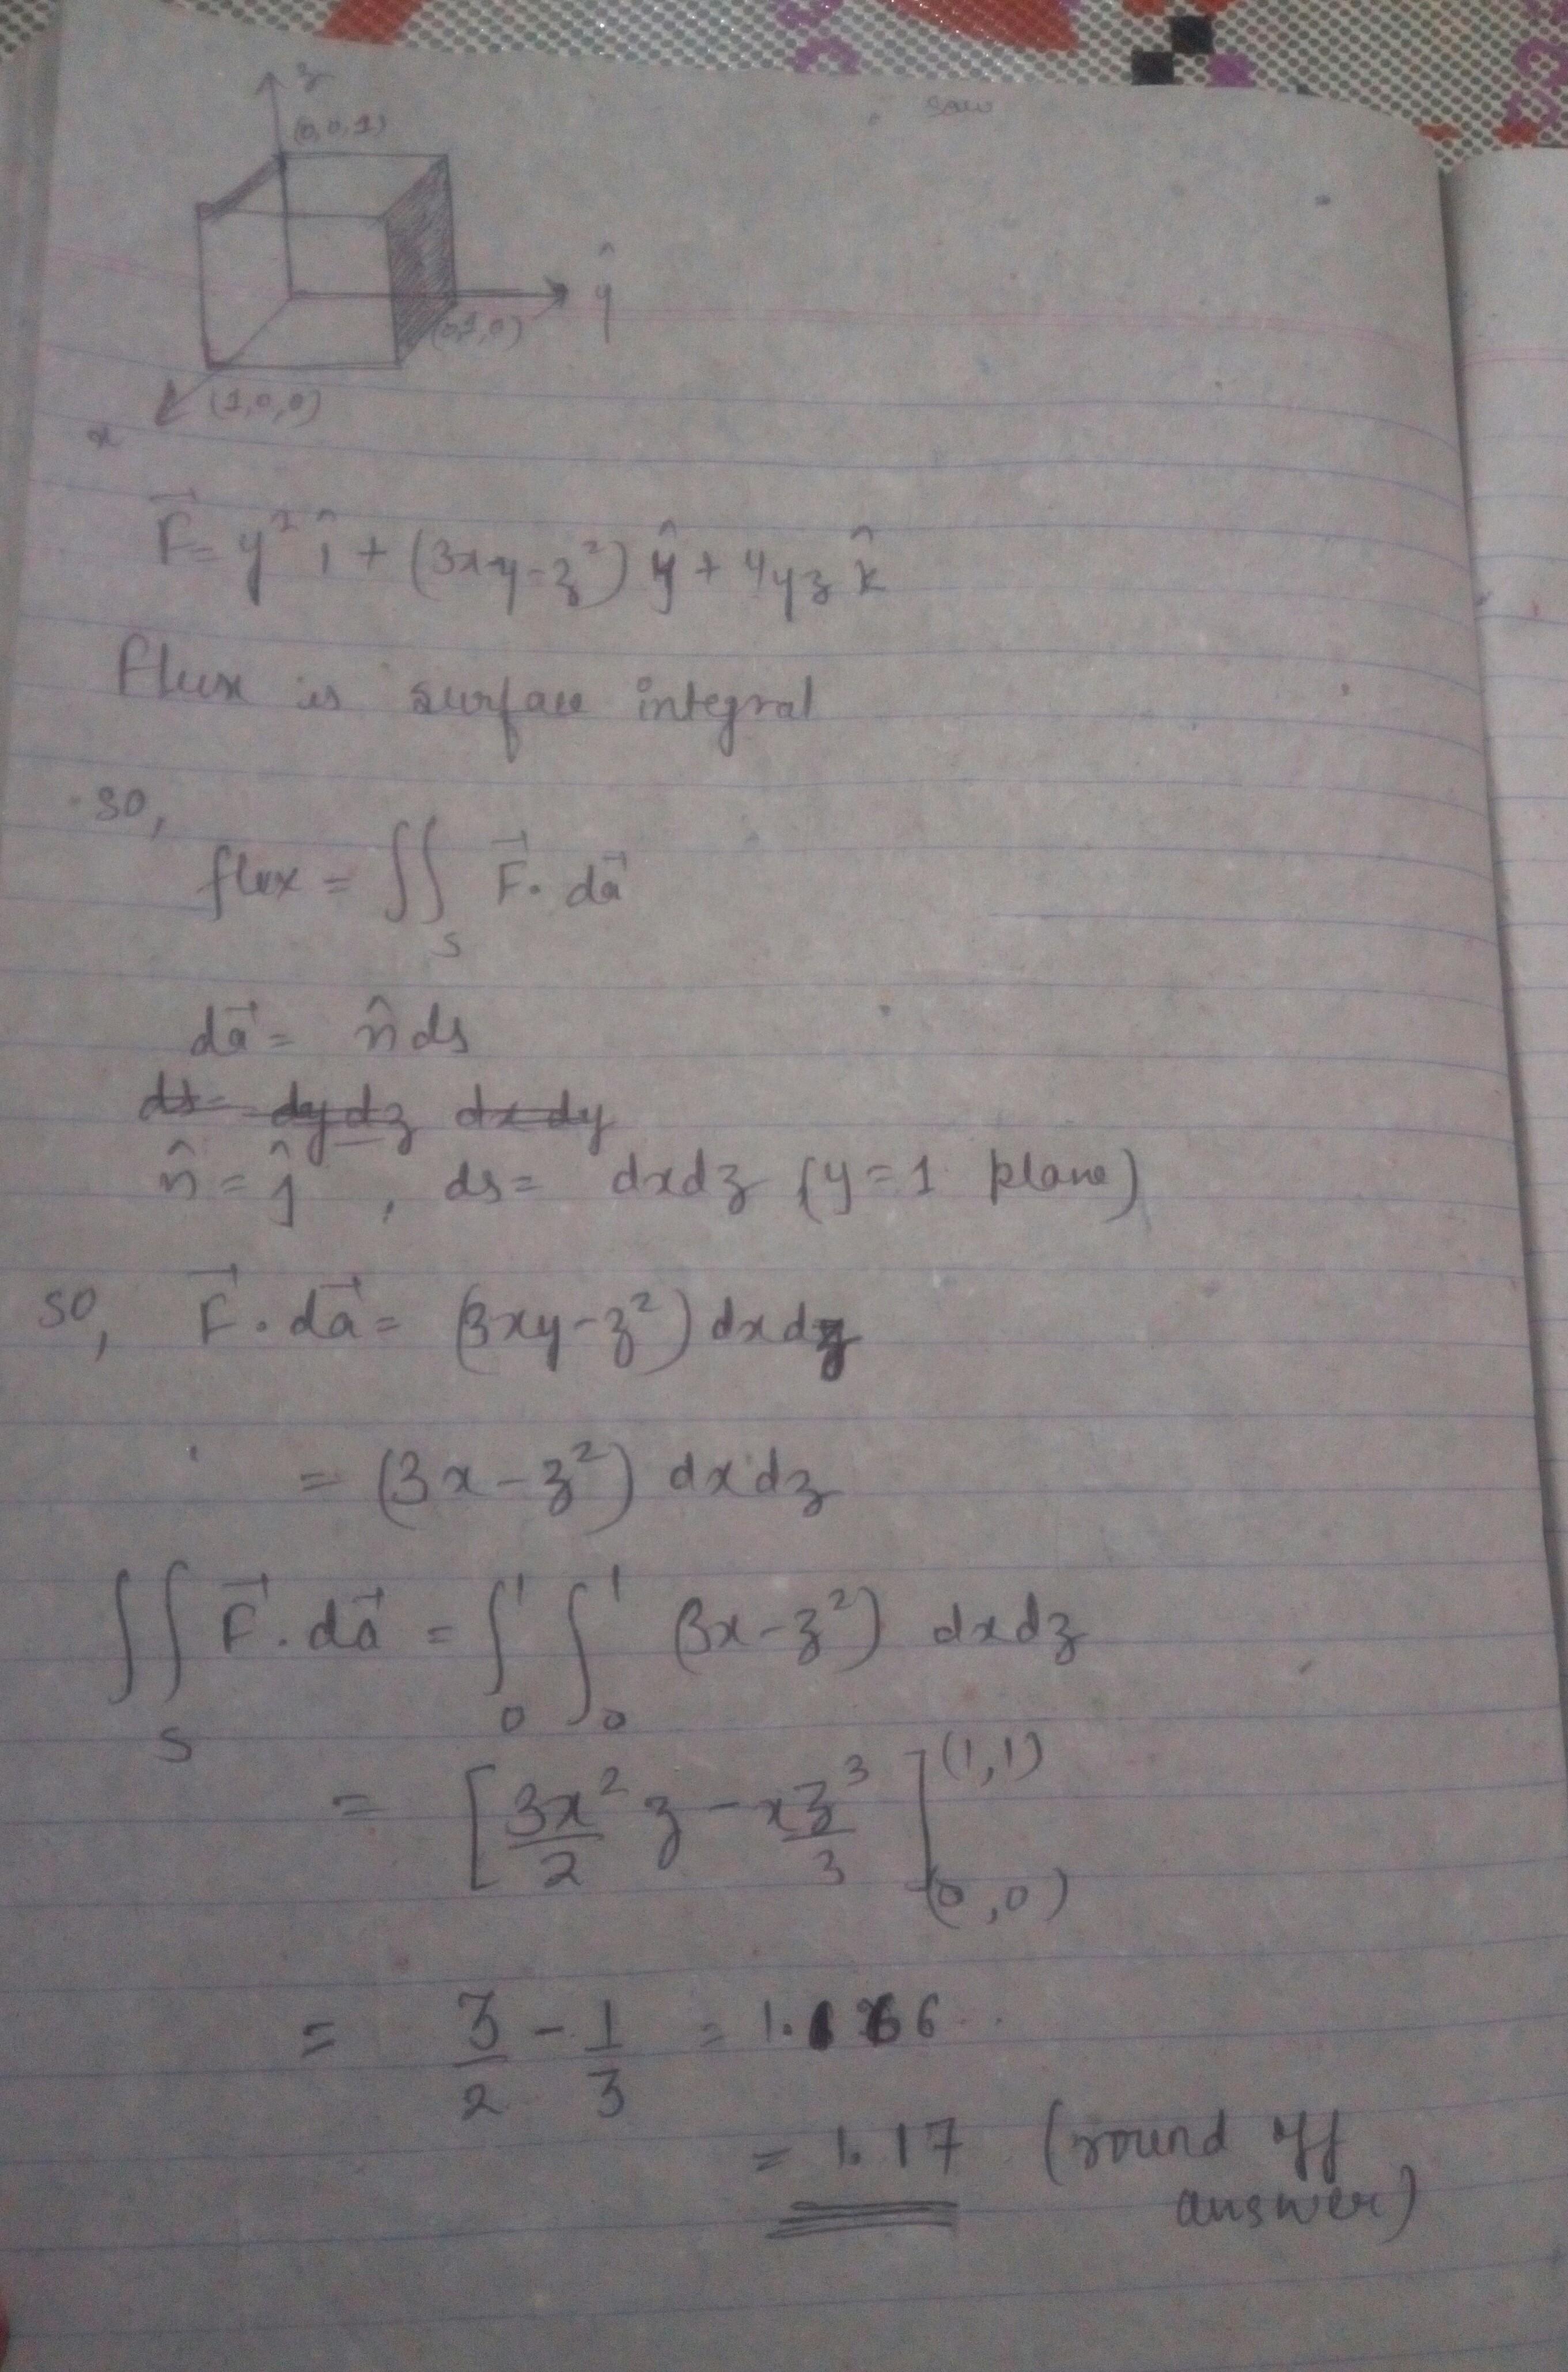 saw
z
(0,0,1)
ŷ
(0,1,0)
(1,0,0)
x
F⃗ = y² î + (3xy-z²) ŷ + 4yz k̂
flux is surface integral
so,
flux = ∬_S F⃗. da⃗
da⃗ = n̂ ds
ds = dydz dxdy
n̂ = ĵ , ds = dxdz (y=1 plane)
so, F⃗. da⃗ = (3xy-z²) dxdz
= (3x-z²) dxdz
∬_S F⃗. da⃗ = ∫₀¹ ∫₀¹ (3x-z²) dxdz
= [3x²/2 z - xz³/3]_(0,0)^(1,1)
= 3/2 - 1/3 = 1.166..
= 1.17 (round off
answer)